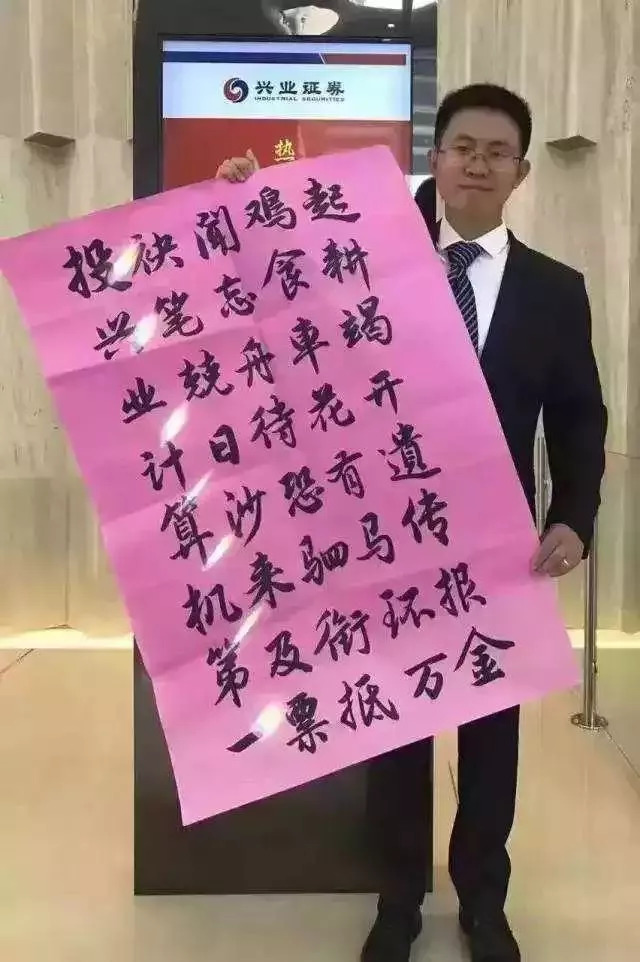 兴业证券
INDUSTRIAL SECURITIES
热
投袂闻鸡起
兴笔忘食耕
业兢舟车竭
计日待花开
算沙恐有遗
机来驷马传
第及衔环报
一票抵万金